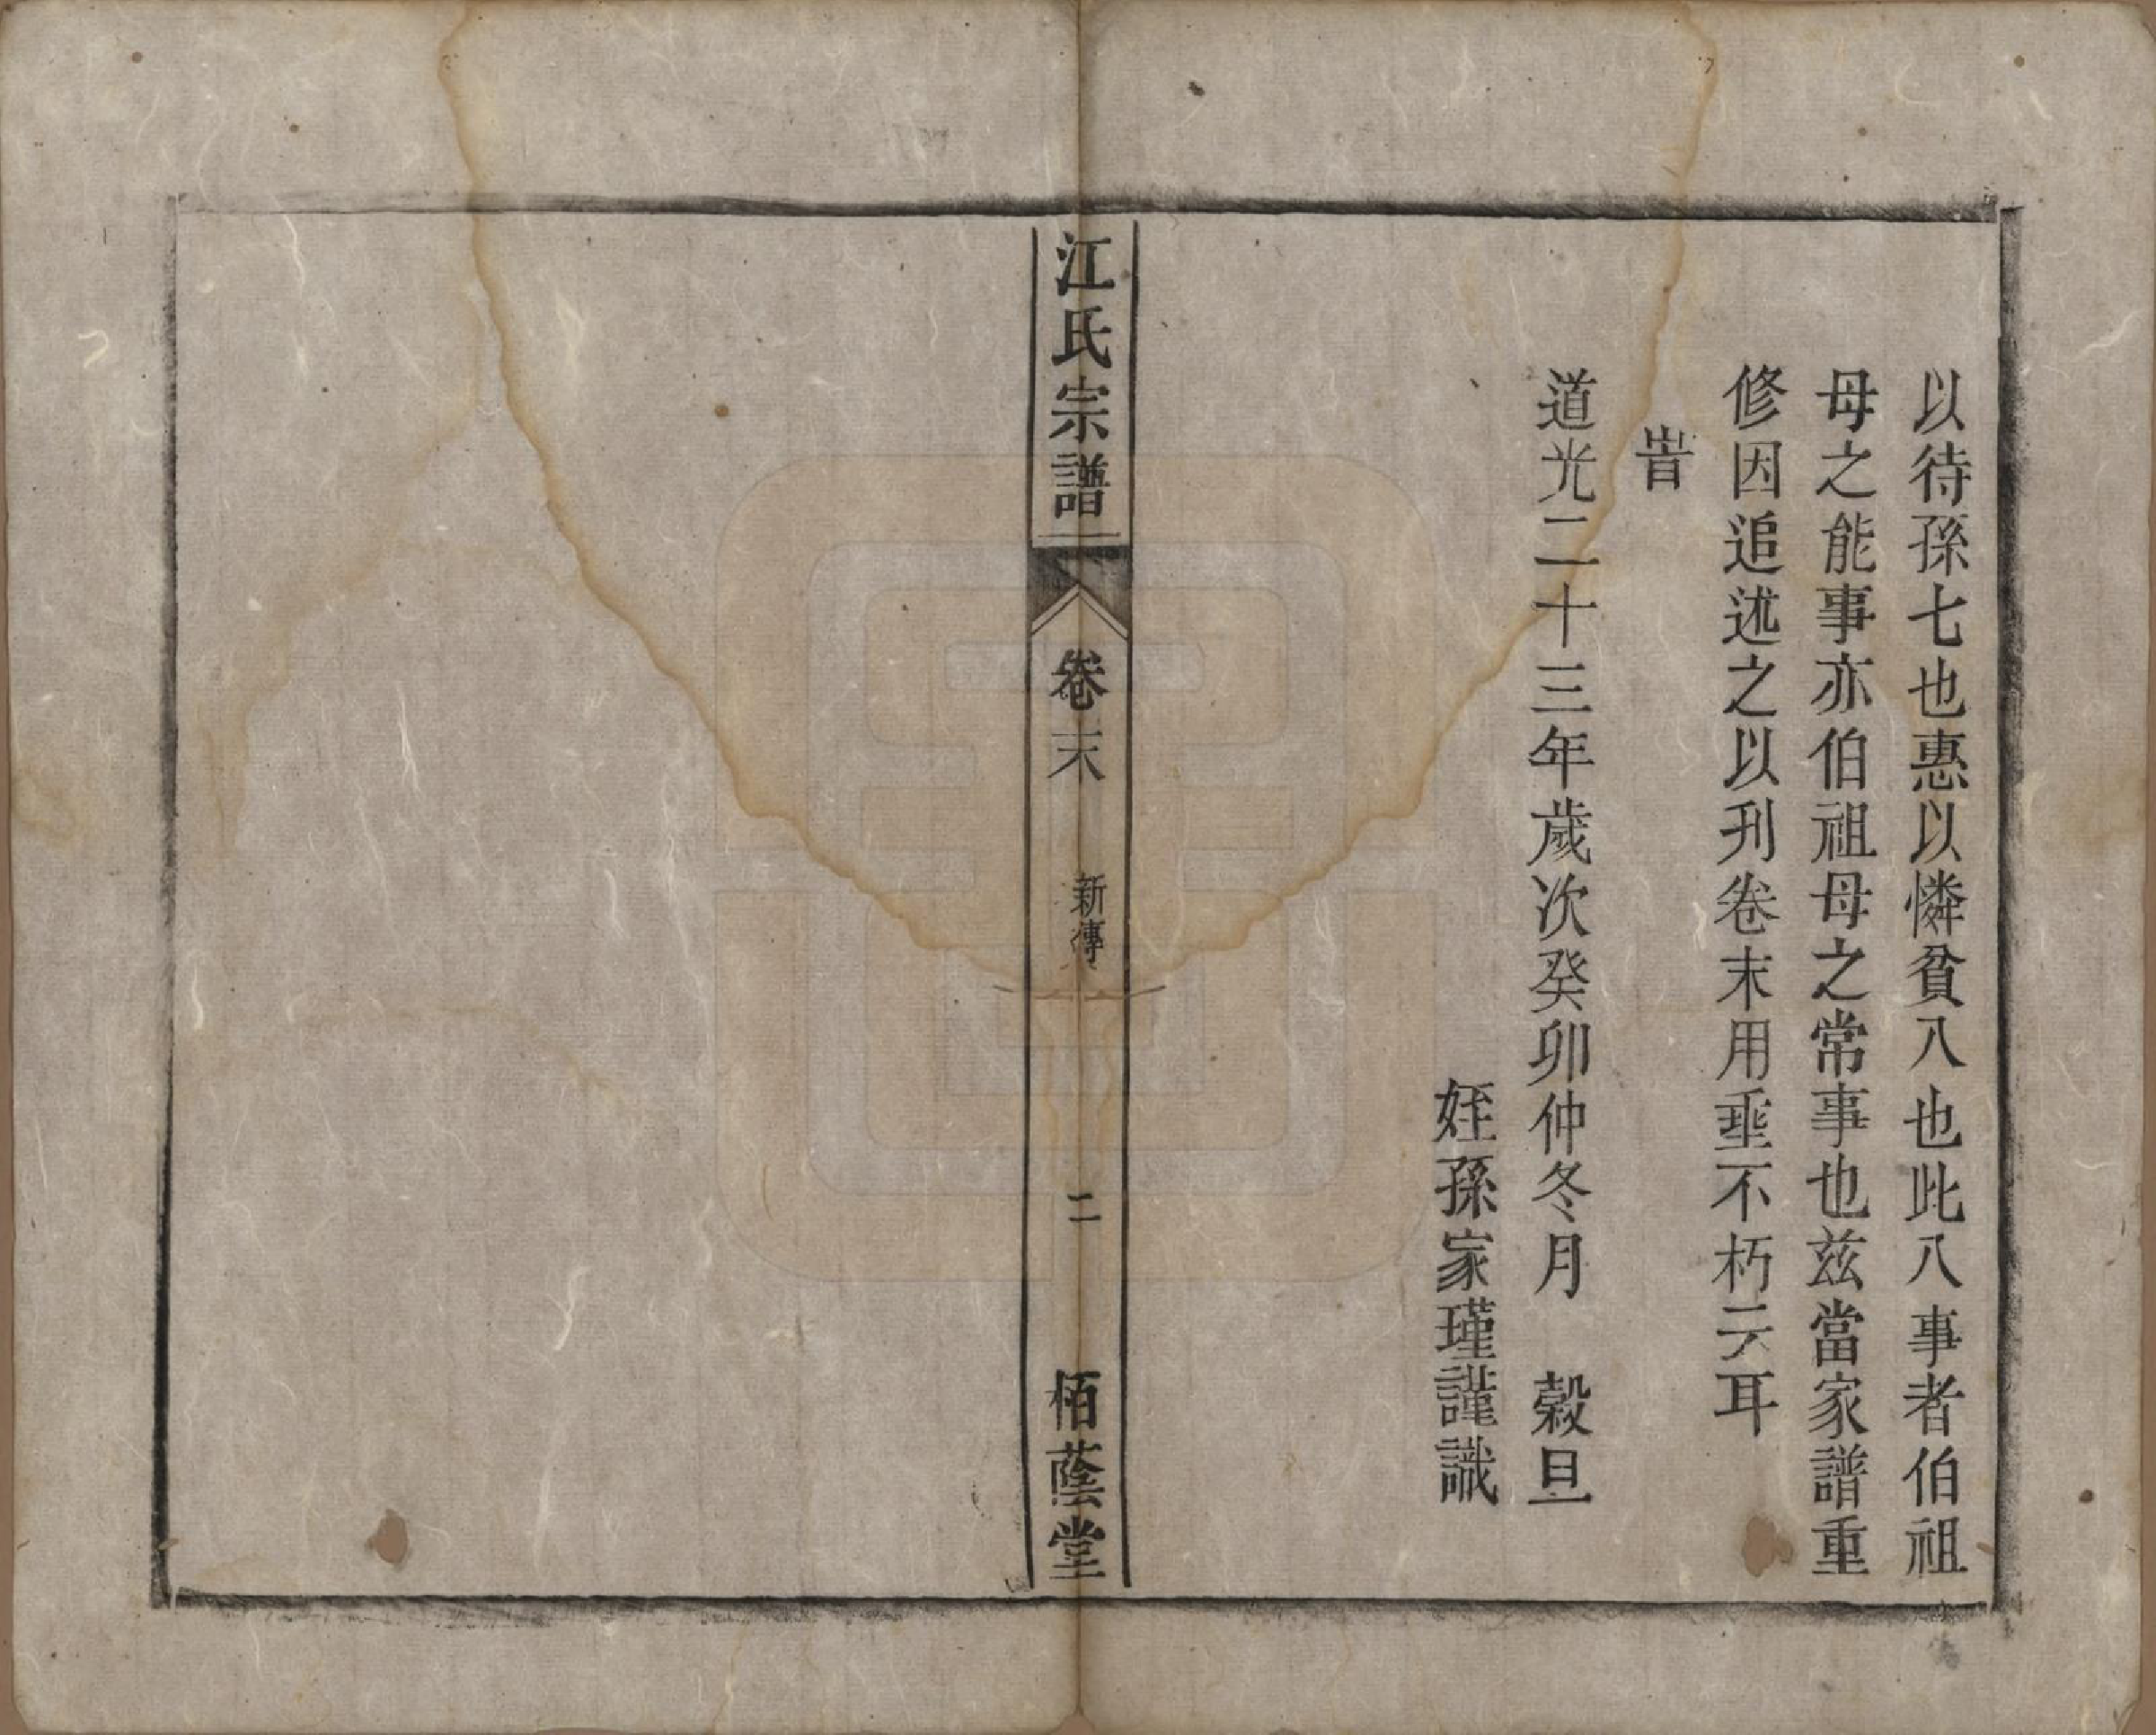 以待孫七也惠以憐貧八也此八事者伯祖
母之能事亦伯祖母之常事也兹當家譜重
修因追述之以刋卷末用垂不朽云耳
旹
道光二十三年歲次癸卯仲冬月 穀旦
姪孫家瑾謹識
江氏宗譜 卷末 新傳 二 栢蔭堂